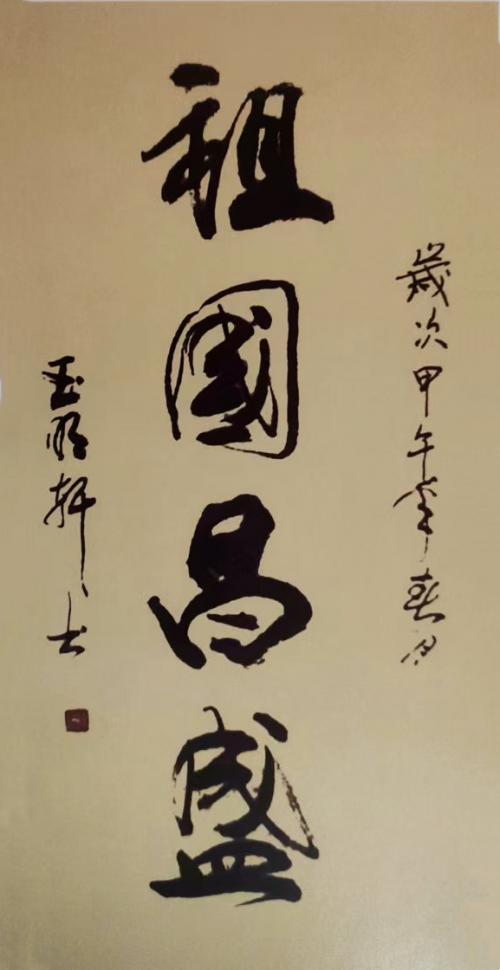 歲次甲午年春月
祖國昌盛
玉明軒书